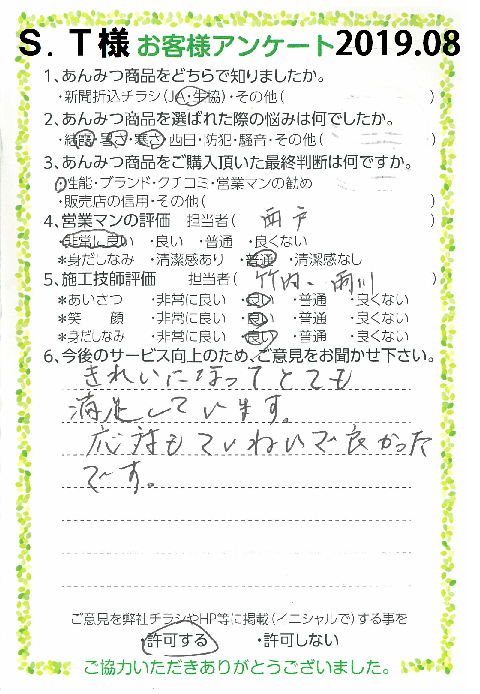 S．T様 お客様アンケート2019.08
1、あんみつ商品をどちらで知りましたか。
・新聞折込チラシ(JA・生協)・その他(　)
2、あんみつ商品を選ばれた際の悩みは何でしたか。
・結露・暑さ・寒さ・西日・防犯・騒音・その他(　)
3、あんみつ商品をご購入頂いた最終判断は何ですか。
・性能・ブランド・クチコミ・営業マンの勧め
・販売店の信用・その他(　)
4、営業マンの評価　担当者(　)
・非常に良い　・良い　・普通　・良くない
*身だしなみ　・清潔感あり　・普通　・清潔感なし
5、施工技師評価　担当者(竹内、　)
*あいさつ　・非常に良い　・良い　・普通　・良くない
*笑　顔　・非常に良い　・良い　・普通　・良くない
*身だしなみ　・非常に良い　・良い　・普通　・良くない
6、今後のサービス向上のため、ご意見をお聞かせ下さい。
きれいになってとても
満足しています。
応対もていねいで良かった
です。
ご意見を弊社チラシやHP等に掲載(イニシャルで)する事を
・許可する　・許可しない
ご協力いただきありがとうございました。